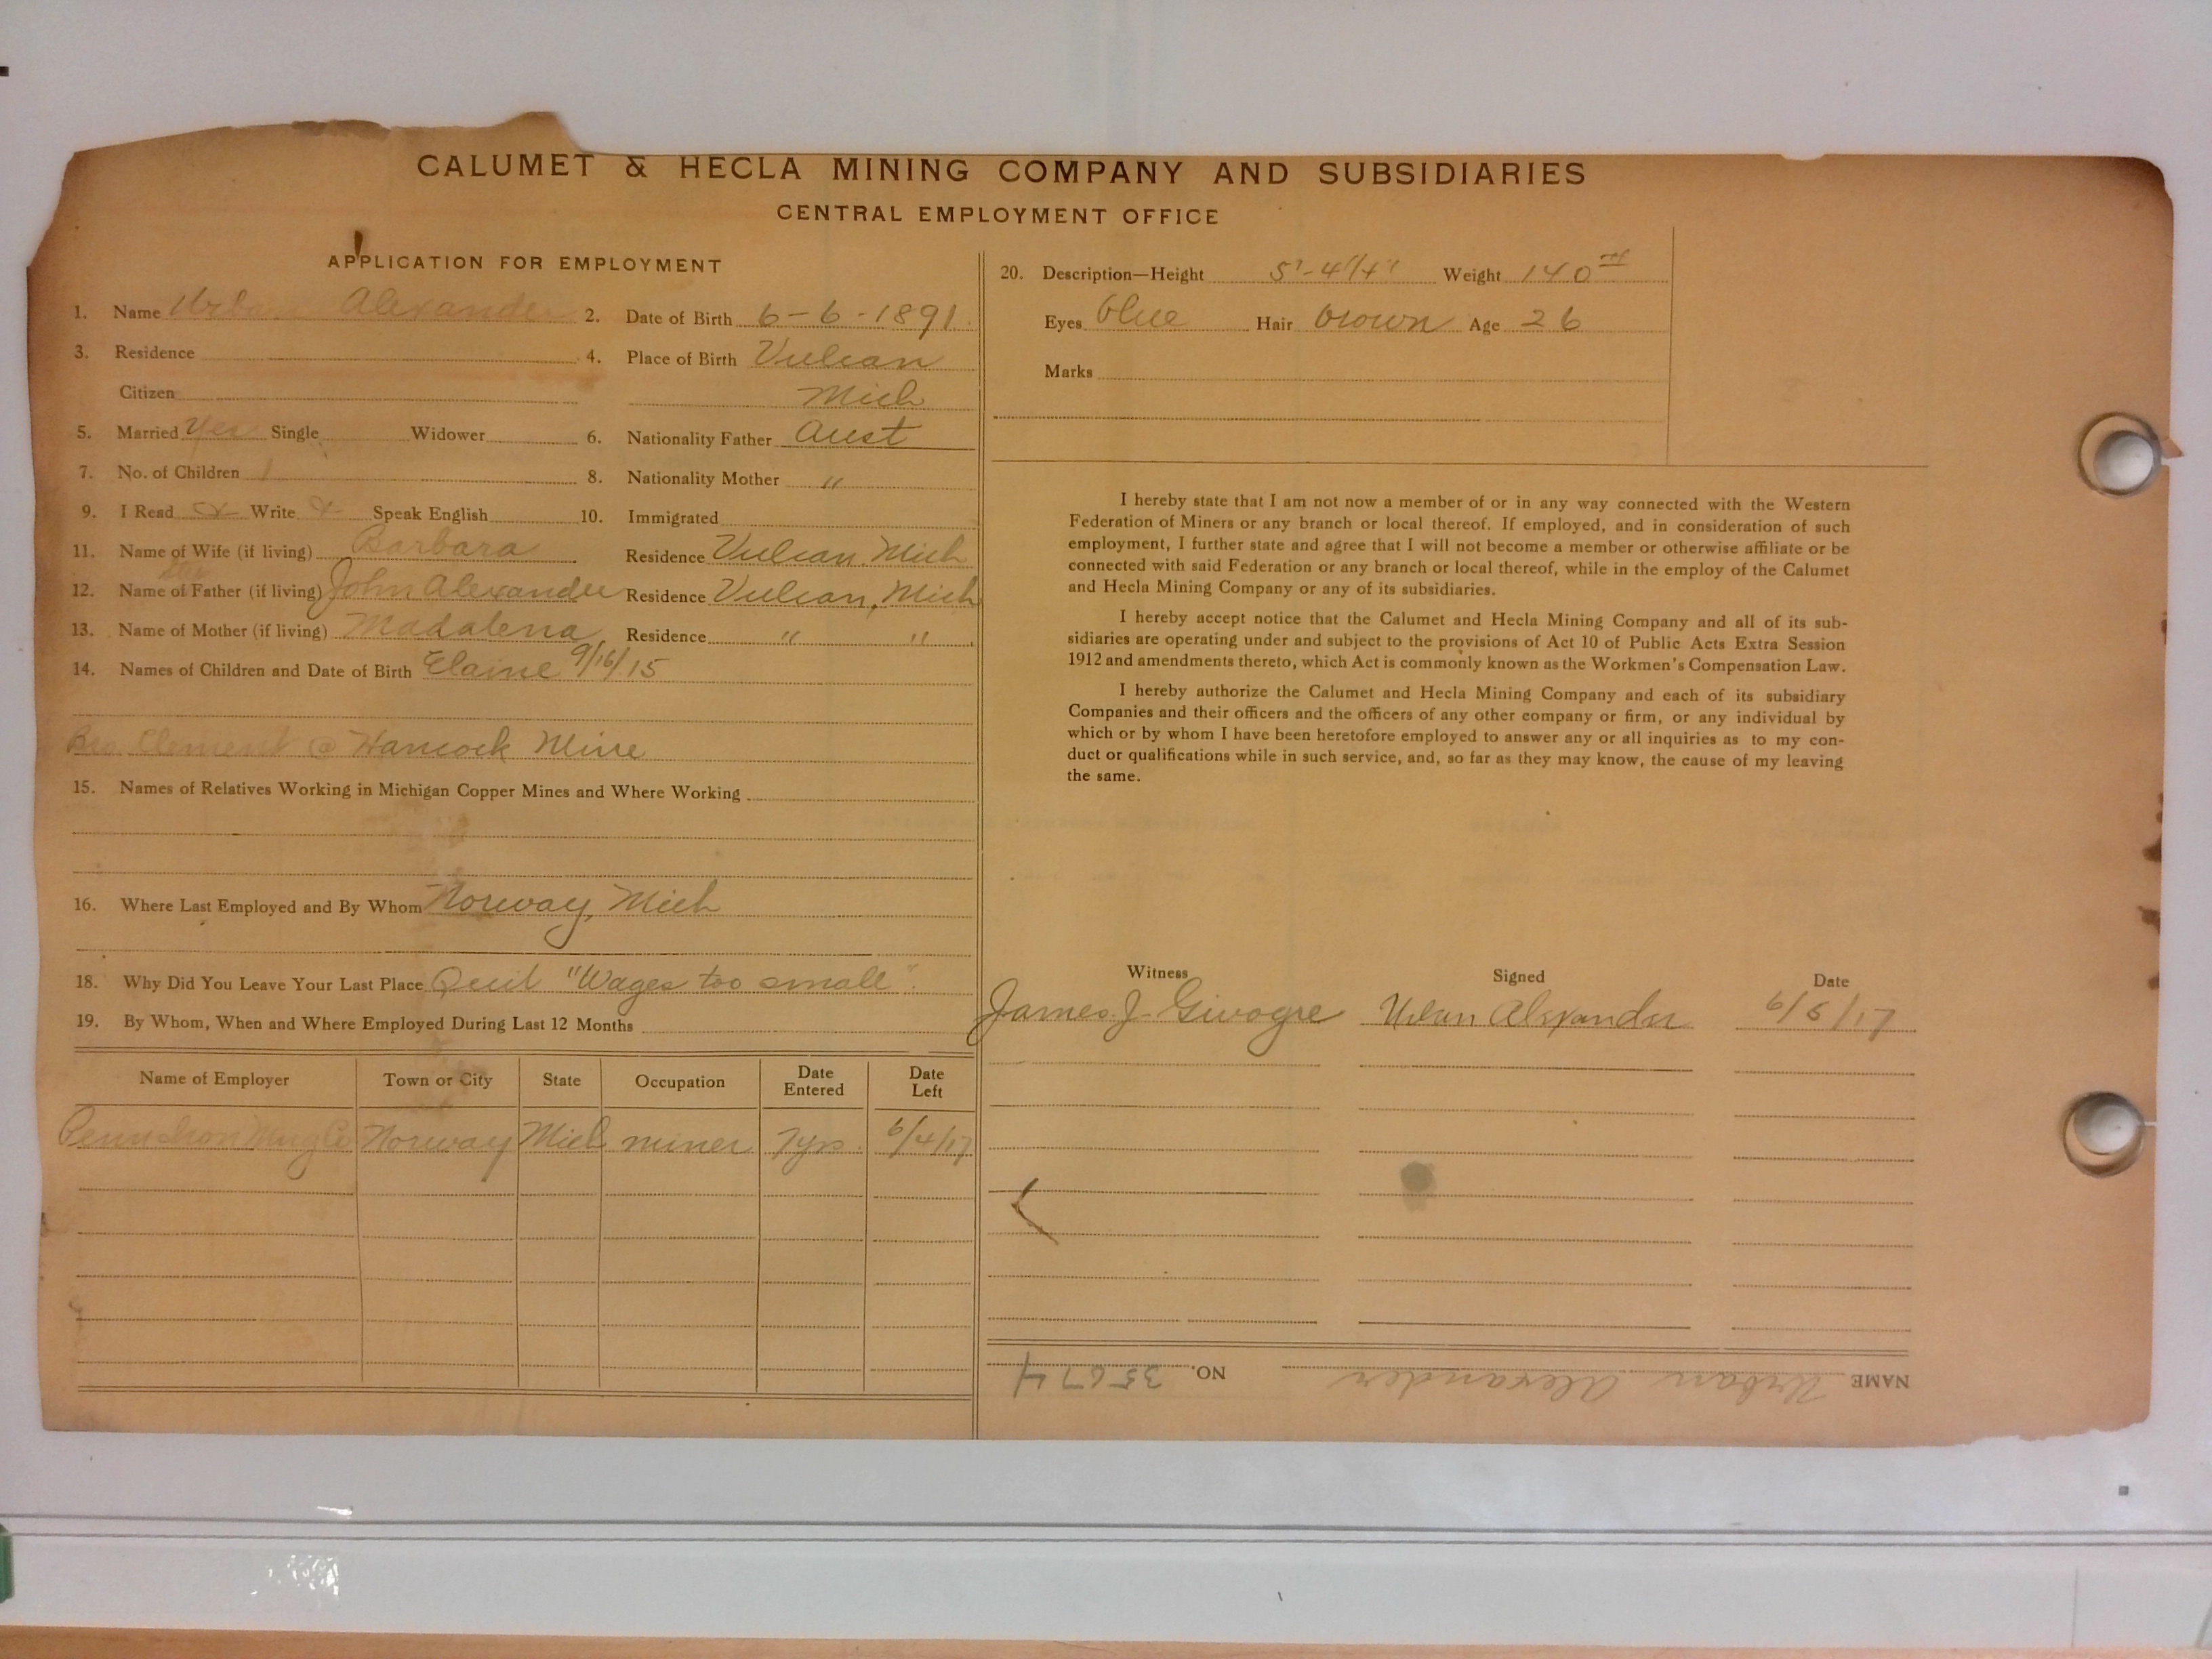 CALUMET & HECLA MINING COMPANY AND SUBSIDIARIES
CENTRAL EMPLOYMENT OFFICE
APPLICATION FOR EMPLOYMENT
1. Name Urban Alexander 2. Date of Birth 6-6-1891
3. Residence 4. Place of Birth Vulcan
Citizen Mich
5. Married Yes Single Widower 6. Nationality Father Aust
7. No. of Children 1 8. Nationality Mother "
9. I Read x Write x Speak English 10. Immigrated
11. Name of Wife (if living) Barbara Residence Vulcan. Mich
12. Name of Father (if living) John Alexander Residence Vulcan, Mich
13. Name of Mother (if living) Madalena Residence " "
14. Names of Children and Date of Birth Elaine 9/16/15
Bro. Clement @ Hancock Mine
15. Names of Relatives Working in Michigan Copper Mines and Where Working
16. Where Last Employed and By Whom Norway, Mich
18. Why Did You Leave Your Last Place Quit "Wages too small".
19. By Whom, When and Where Employed During Last 12 Months
Name of Employer Town or City State Occupation Date Entered Date Left
Penn Iron Mng Co Norway Mich miner 7yrs. 6/4/17
20. Description—Height 5'-4 1/4" Weight 140
Eyes blue Hair brown Age 26
Marks
I hereby state that I am not now a member of or in any way connected with the Western
Federation of Miners or any branch or local thereof. If employed, and in consideration of such
employment, I further state and agree that I will not become a member or otherwise affiliate or be
connected with said Federation or any branch or local thereof, while in the employ of the Calumet
and Hecla Mining Company or any of its subsidiaries.
I hereby accept notice that the Calumet and Hecla Mining Company and all of its sub-
sidiaries are operating under and subject to the provisions of Act 10 of Public Acts Extra Session
1912 and amendments thereto, which Act is commonly known as the Workmen's Compensation Law.
I hereby authorize the Calumet and Hecla Mining Company and each of its subsidiary
Companies and their officers and the officers of any other company or firm, or any individual by
which or by whom I have been heretofore employed to answer any or all inquiries as to my con-
duct or qualifications while in such service, and, so far as they may know, the cause of my leaving
the same.
Witness Signed Date
James J. Givogre Urban Alexander 6/5/17
NAME Urban Alexander NO. 35674